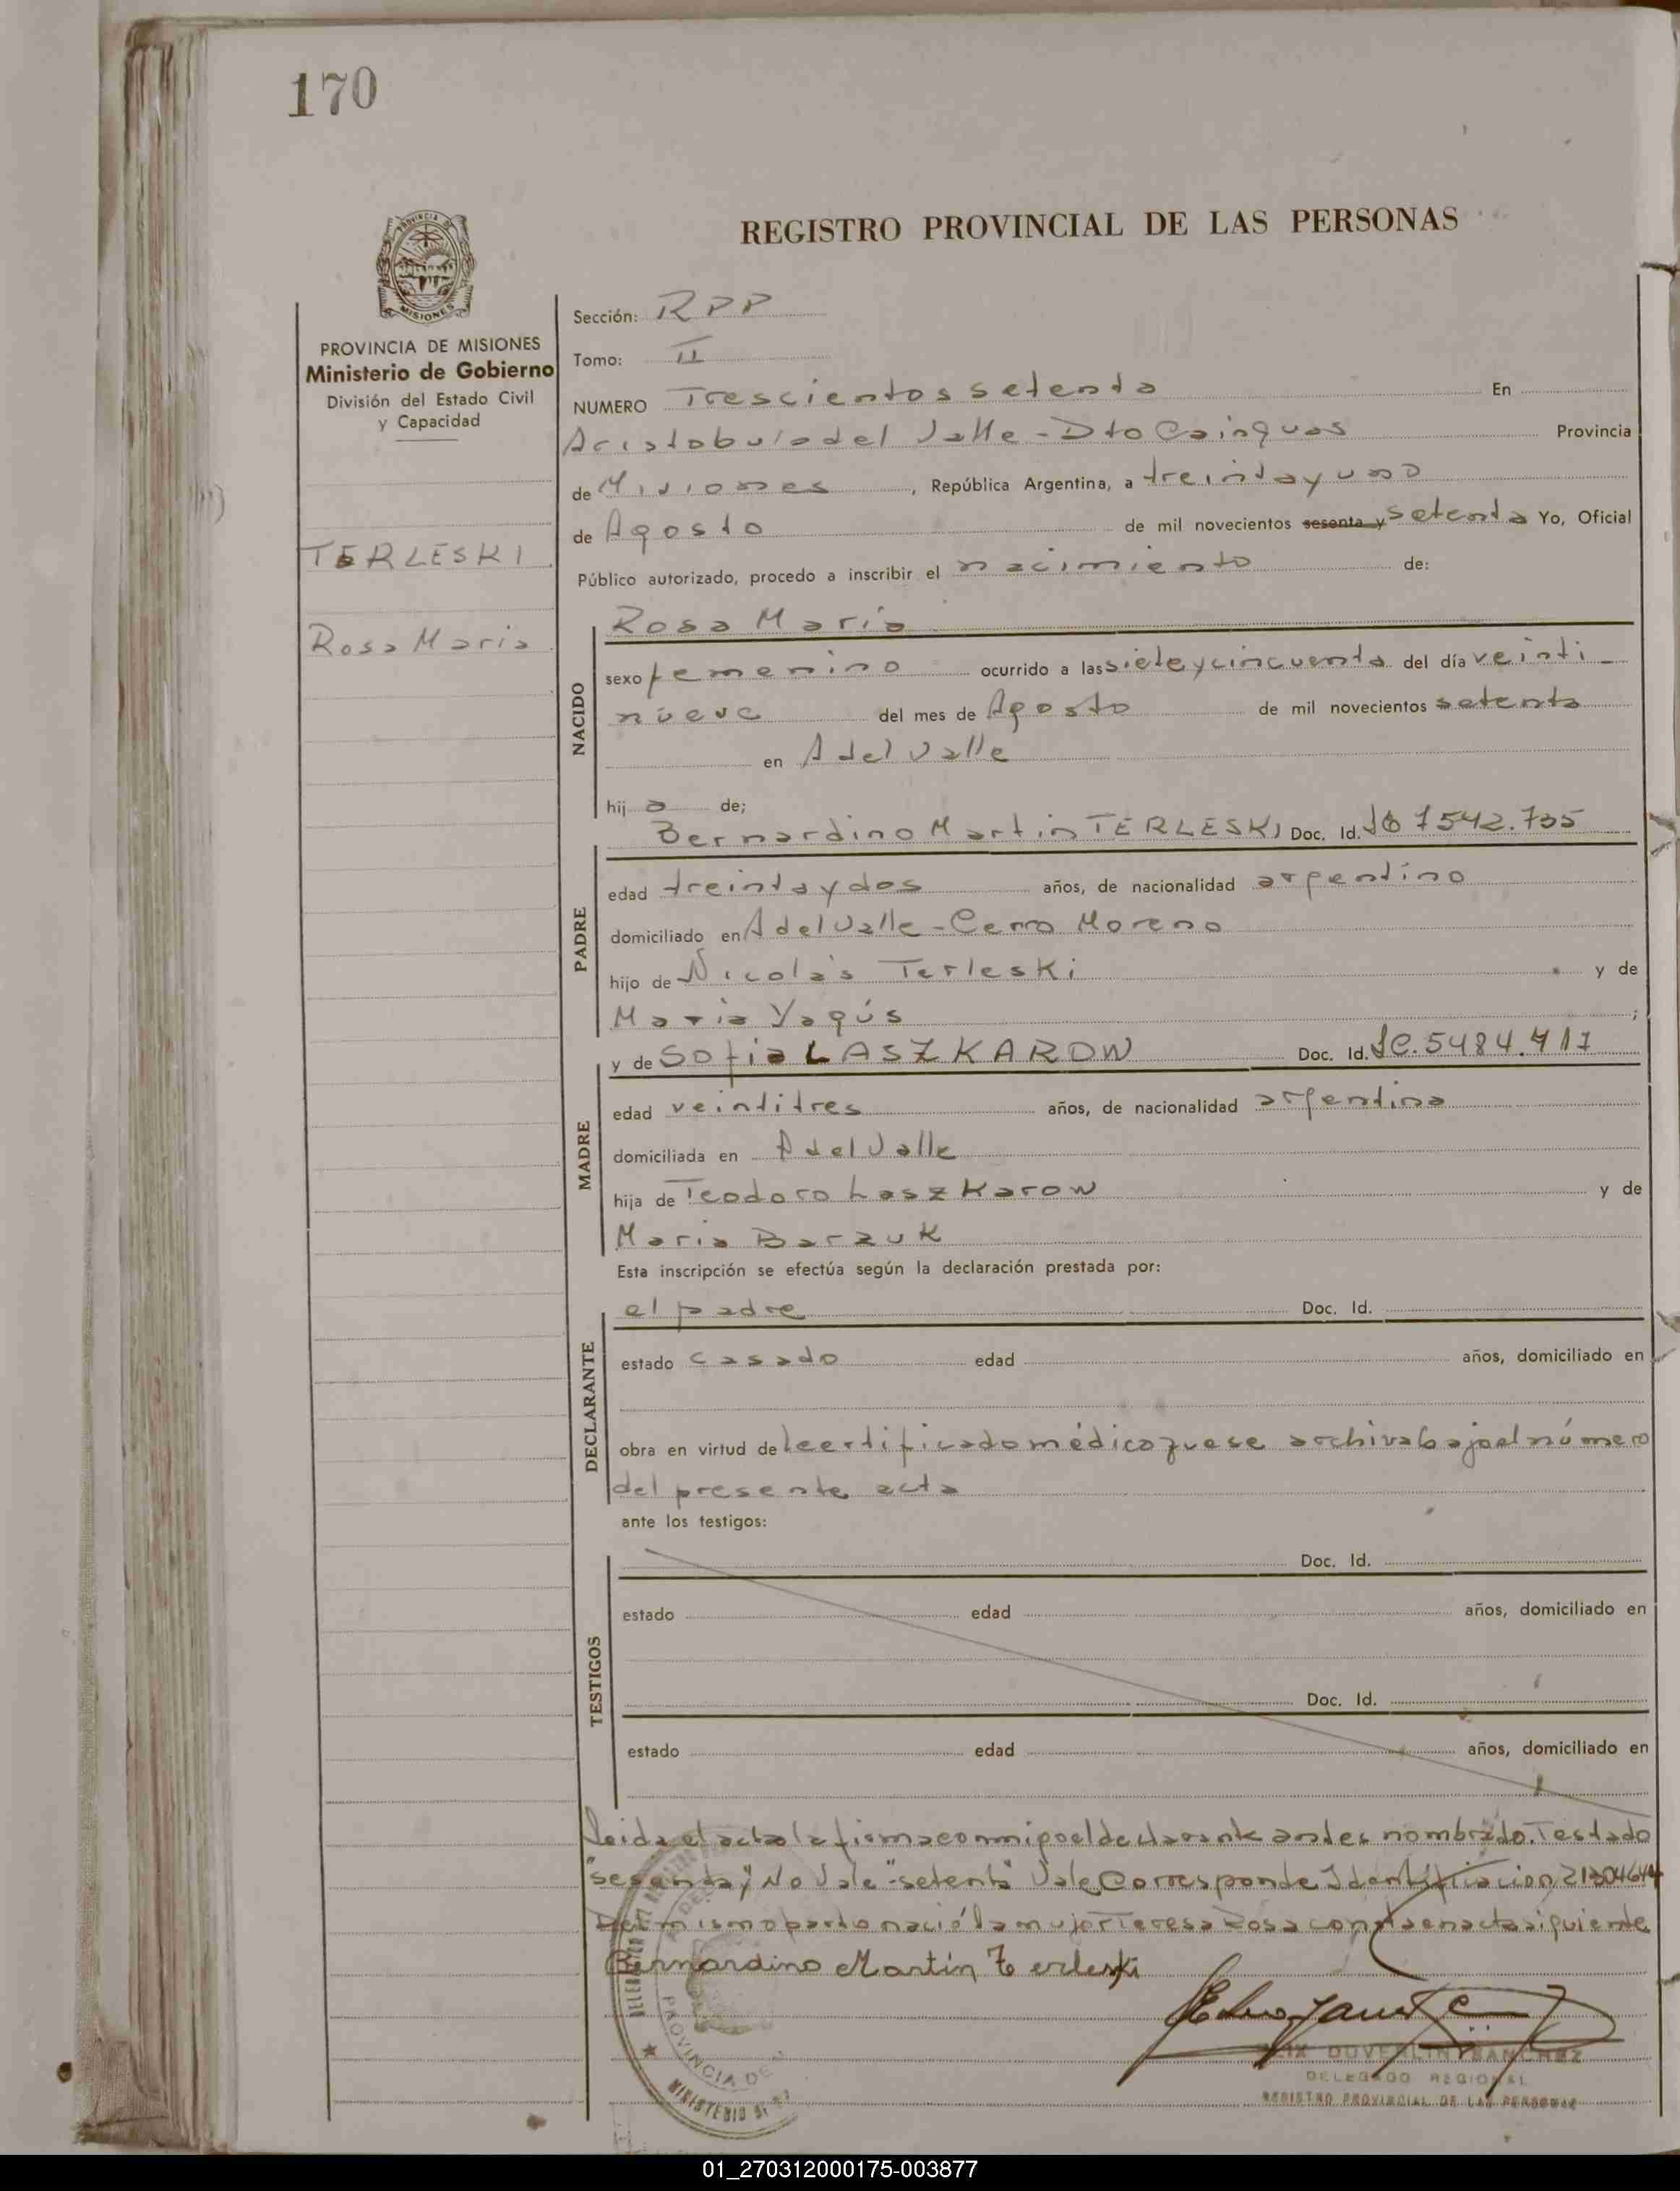 170
REGISTRO PROVINCIAL DE LAS PERSONAS
PROVINCIA
MISIONES
PROVINCIA DE MISIONES
Ministerio de Gobierno
División del Estado Civil
y Capacidad
TERLESKI
Rosa Maria
Sección: RPP
Tomo: II
NUMERO Trescientos setenta En
Aristobulo del Valle - Dto Cainguas Provincia
de Misiones, República Argentina, a treinta y uno
de Agosto de mil novecientos sesenta y setenta Yo, Oficial
Público autorizado, procedo a inscribir el nacimiento de:
NACIDO
Rosa María
sexo femenino ocurrido a las siete y cincuenta del día veinti-
nueve del mes de Agosto de mil novecientos setenta
en A del Valle
hij a de;
PADRE
Bernardino Martin TERLESKI Doc. Id. 7542.735
edad treinta y dos años, de nacionalidad argentino
domiciliado en A del Valle - Cerro Moreno
hijo de Nicolás Terleski y de
Maria Yagús ;
MADRE
y de Sofia LASZKAROW Doc. Id. LC.5484.417
edad veintitres años, de nacionalidad argentina
domiciliada en A del Valle
hija de Teodoro Laszkarow y de
Maria Barzuk
Esta inscripción se efectúa según la declaración prestada por:
DECLARANTE
el padre Doc. Id.
estado casado edad años, domiciliado en
obra en virtud de certificado médico que se archiva bajo el número
del presente acta
ante los testigos:
TESTIGOS
Doc. Id.
estado edad años, domiciliado en
Doc. Id.
estado edad años, domiciliado en
Leida el acta la firma conmigo el declarante antes nombrado. Testado
"sesenta y" No Vale "setenta" Vale Corresponde Identificacion 21304644
Del mismo parto nació la mujer Teresa Rosa consta en acta siguiente
Bernardino Martín Terleski
DUVERLIN SANCHEZ
DELEGADO REGIONAL
REGISTRO PROVINCIAL DE LAS PERSONAS
PROVINCIA DE
MINISTERIO
01_270312000175-003877